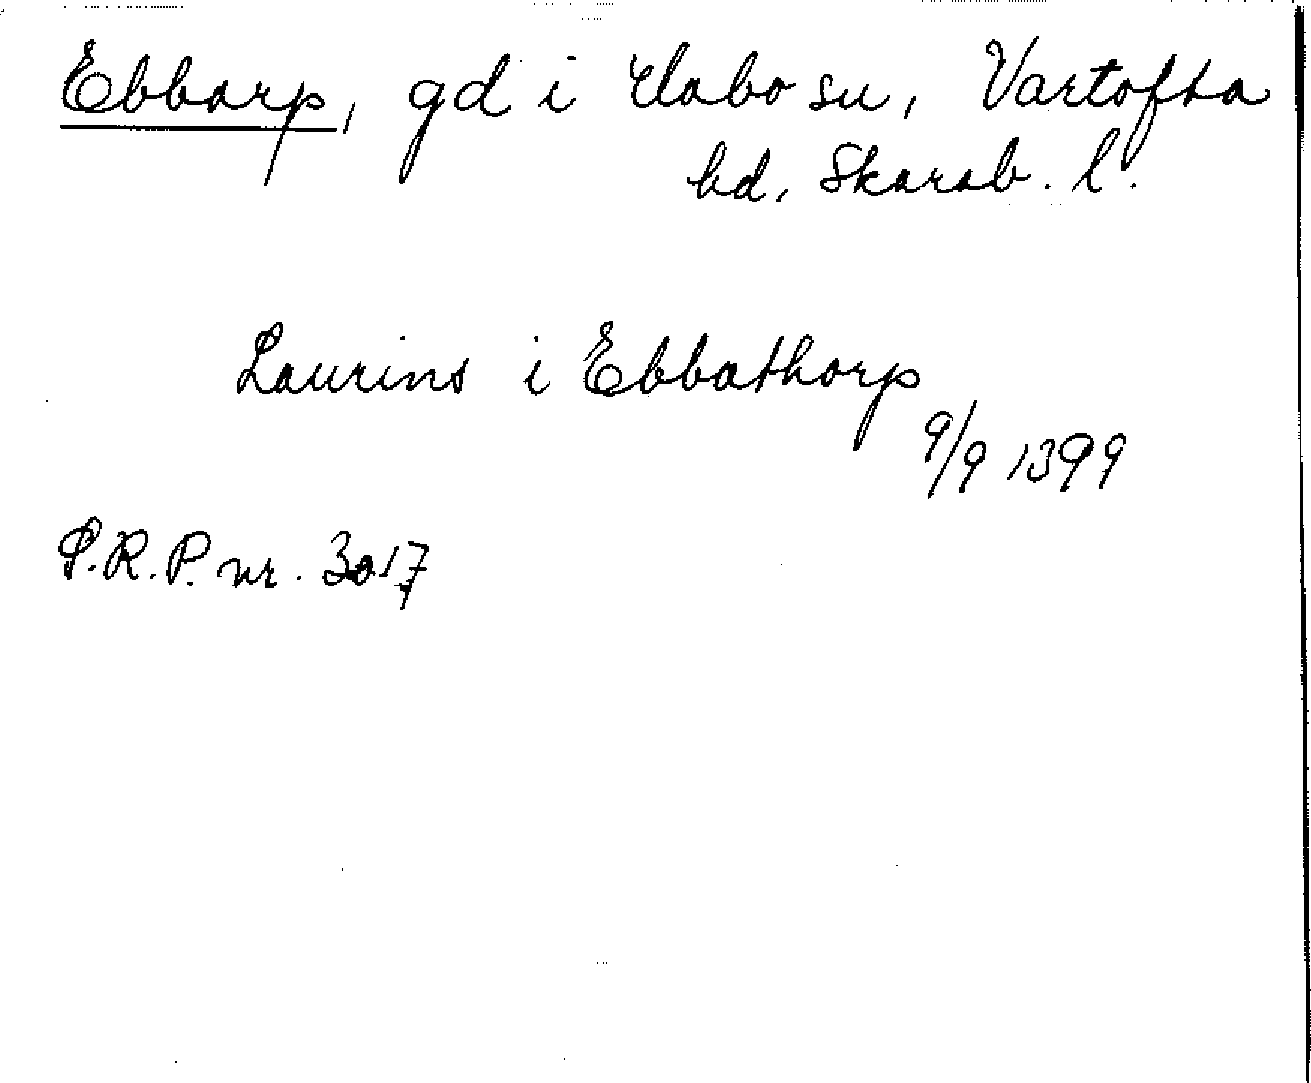 Ebbarp, gd i Habo sn, Vartofta
hd, Skarab. l.
Laurins i Ebbathorp
9/9 1399
S.R.P. nr. 3017